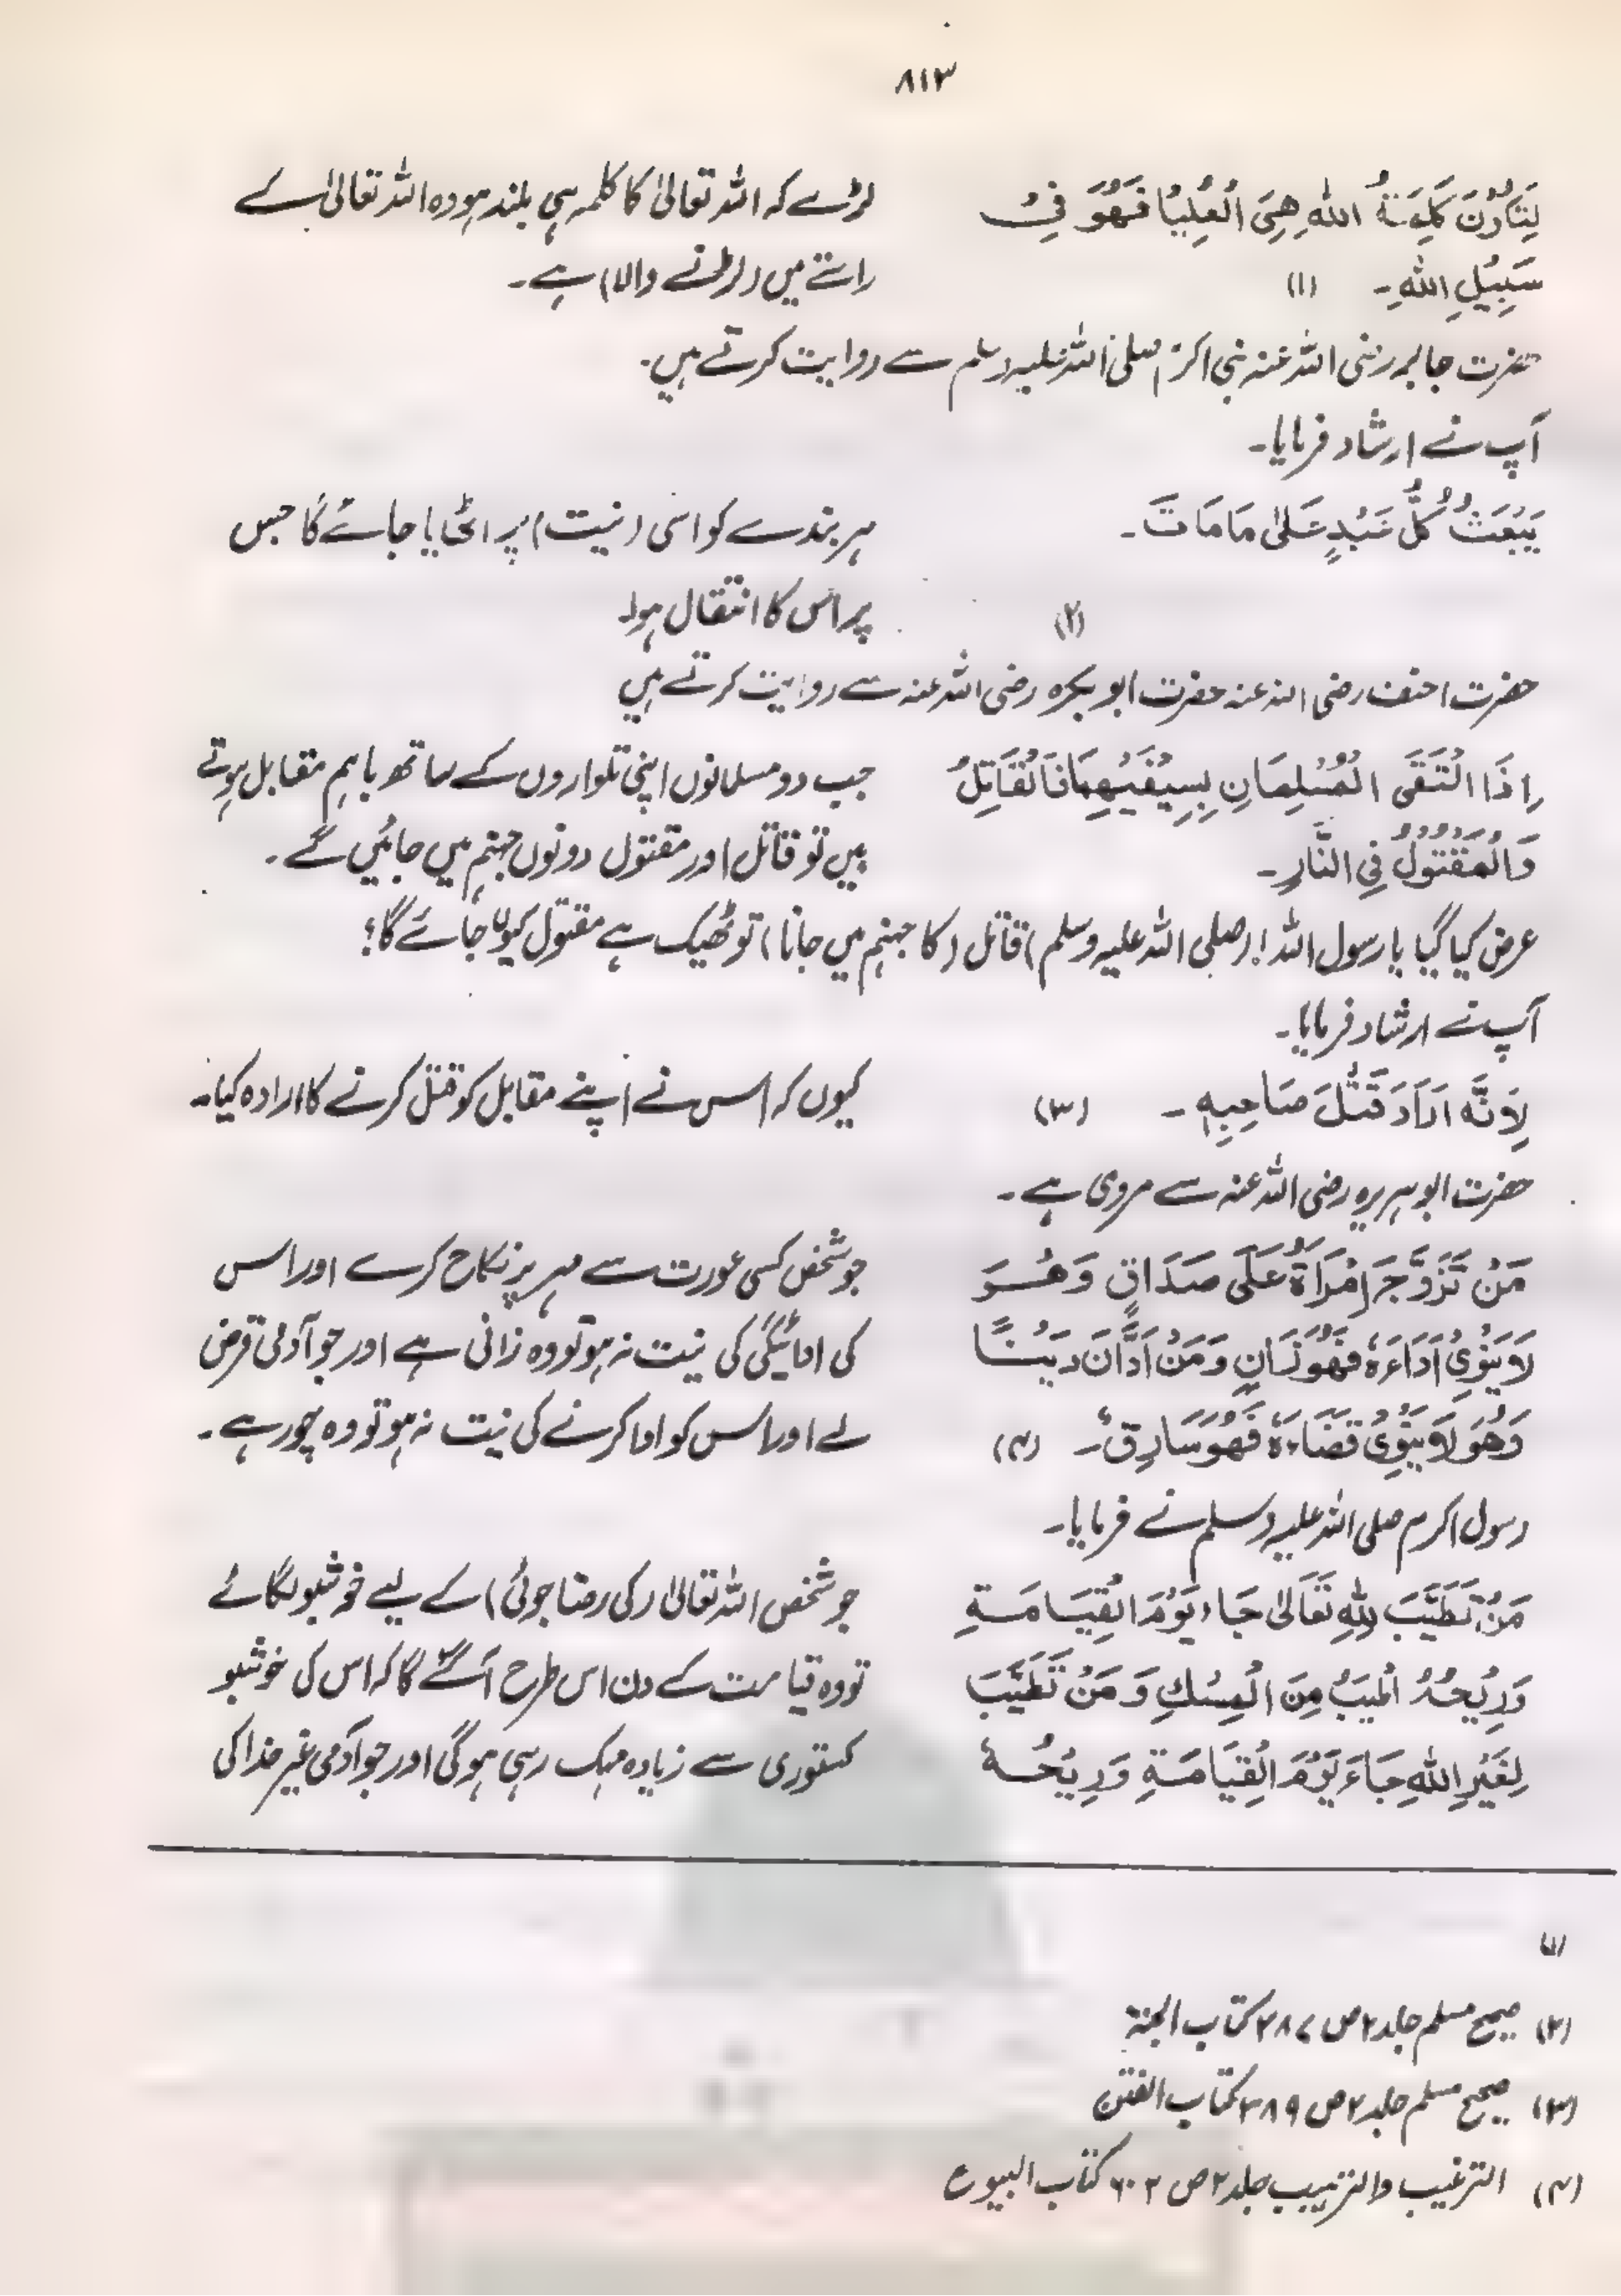 ۸۱۳
لِتَكُوْنَ كَلِمَةُ اللهِ هِيَ الْعُلْيَا فَهُوَ فِيْ
سَبِيْلِ اللهِ۔ (۱)
لڑے کہ اللہ تعالیٰ کا کلمہ ہی بلند ہو وہ اللہ تعالیٰ کے
راستے میں (لڑنے والا) ہے۔
حضرت جابر رضی اللہ عنہ نبی اکرم صلی اللہ علیہ وسلم سے روایت کرتے ہیں۔
آپ نے ارشاد فرمایا۔
يُبْعَثُ كُلُّ عَبْدٍ عَلىٰ مَا مَاتَ۔
(۲)
ہر بندے کو اسی (نیت) پر اٹھایا جائے گا جس
پر اس کا انتقال ہوا۔
حضرت احنف رضی اللہ عنہ حضرت ابو بکرہ رضی اللہ عنہ سے روایت کرتے ہیں
اِذَا الْتَقَى الْمُسْلِمَانِ بِسَيْفَيْهِمَا فَالْقَاتِلُ
وَالْمَقْتُوْلُ فِي النَّارِ۔
جب دو مسلمانوں اپنی تلواروں کے ساتھ باہم مقابل ہوتے
ہیں تو قاتل اور مقتول دونوں جہنم میں جائیں گے۔
عرض کیا گیا یا رسول اللہ! (صلی اللہ علیہ وسلم) قاتل (کا جہنم میں جانا) تو ٹھیک ہے مقتول کیوں جائے گا؟
آپ نے ارشاد فرمایا۔
لِاَنَّهٗ اَرَادَ قَتْلَ صَاحِبِهٖ۔ (۳)
کیوں کہ اس نے اپنے مقابل کو قتل کرنے کا ارادہ کیا۔
حضرت ابو ہریرہ رضی اللہ عنہ سے مروی ہے۔
مَنْ تَزَوَّجَ امْرَاَةً عَلَى صَدَاقٍ وَهُوَ
لَا يَنْوِيْ اَدَاءَهٗ فَهُوَ زَانٍ وَمَنْ اَدَّانَ دَيْنًا
وَهُوَ لَا يَنْوِيْ قَضَاءَهٗ فَهُوَ سَارِقٌ۔ (۴)
جو شخص کسی عورت سے مہر پر نکاح کرے اور اس
کی ادائیگی کی نیت نہ ہو تو وہ زانی ہے اور جو آدمی قرض
لے اور اس کو ادا کرنے کی نیت نہ ہو تو وہ چور ہے۔
رسول اکرم صلی اللہ علیہ وسلم نے فرمایا۔
مَنْ تَطَيَّبَ لِلّٰهِ تَعَالىٰ جَاءَ يَوْمَ الْقِيَامَةِ
وَرِيْحُهٗ اَطْيَبُ مِنَ الْمِسْكِ وَمَنْ تَطَيَّبَ
لِغَيْرِ اللهِ جَاءَ يَوْمَ الْقِيَامَةِ وَرِيْحُهٗ
جو شخص اللہ تعالیٰ (کی رضا جوئی) کے لیے خوشبو لگائے
تو وہ قیامت کے دن اس طرح آئے گا کہ اس کی خوشبو
کستوری سے زیادہ مہک رہی ہوگی اور جو آدمی غیر خدا کی
(۱)
(۲) صحیح مسلم جلد ۲ ص ۳۸۷ کتاب الجنۃ
(۳) صحیح مسلم جلد ۲ ص ۳۸۹ کتاب الفتن
(۴) الترغیب والترہیب جلد ۲ ص ۶۰۲ کتاب البیوع